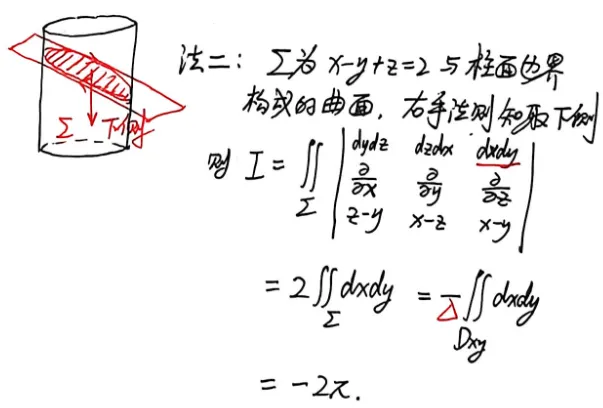 Σ 下侧
法二: Σ为 x-y+z=2 与柱面为界
构成的曲面, 右手法则知取下侧
则 I = ∬_Σ | dydz dzdx dxdy |
| ∂/∂x ∂/∂y ∂/∂z |
| z-y x-z x-y |
= 2∬_Σ dxdy = -∬_Dxy dxdy
= -2π.